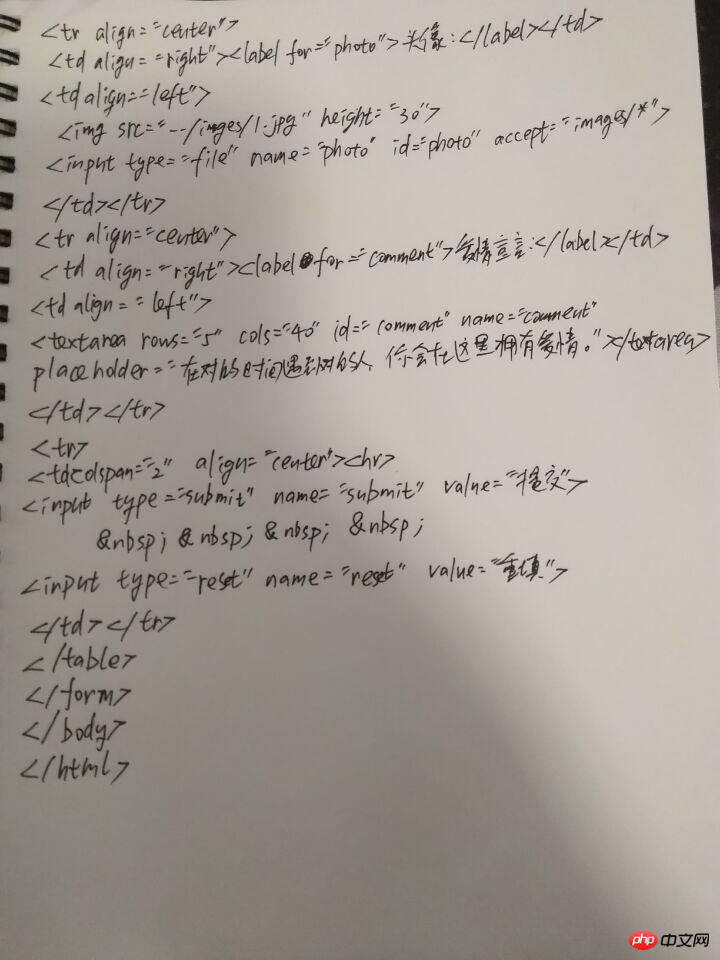 <tr align="center">
<td align="right"><label for="photo">头像:</label></td>
<td align="left">
<img src="--/images/1.jpg" height="30">
<input type="file" name="photo" id="photo" accept="images/*">
</td></tr>
<tr align="center">
<td align="right"><label for="comment">爱情宣言:</label></td>
<td align="left">
<textarea rows="5" cols="40" id="comment" name="comment"
placeholder="在对的时间遇到对的人,你会在这里拥有爱情。"></textarea>
</td></tr>
<tr>
<tdcolspan="2" align="center"><hr>
<input type="submit" name="submit" value="提交">
&nbsp; &nbsp; &nbsp; &nbsp;
<input type="reset" name="reset" value="重填">
</td></tr>
</table>
</form>
</body>
</html>
php 中文网